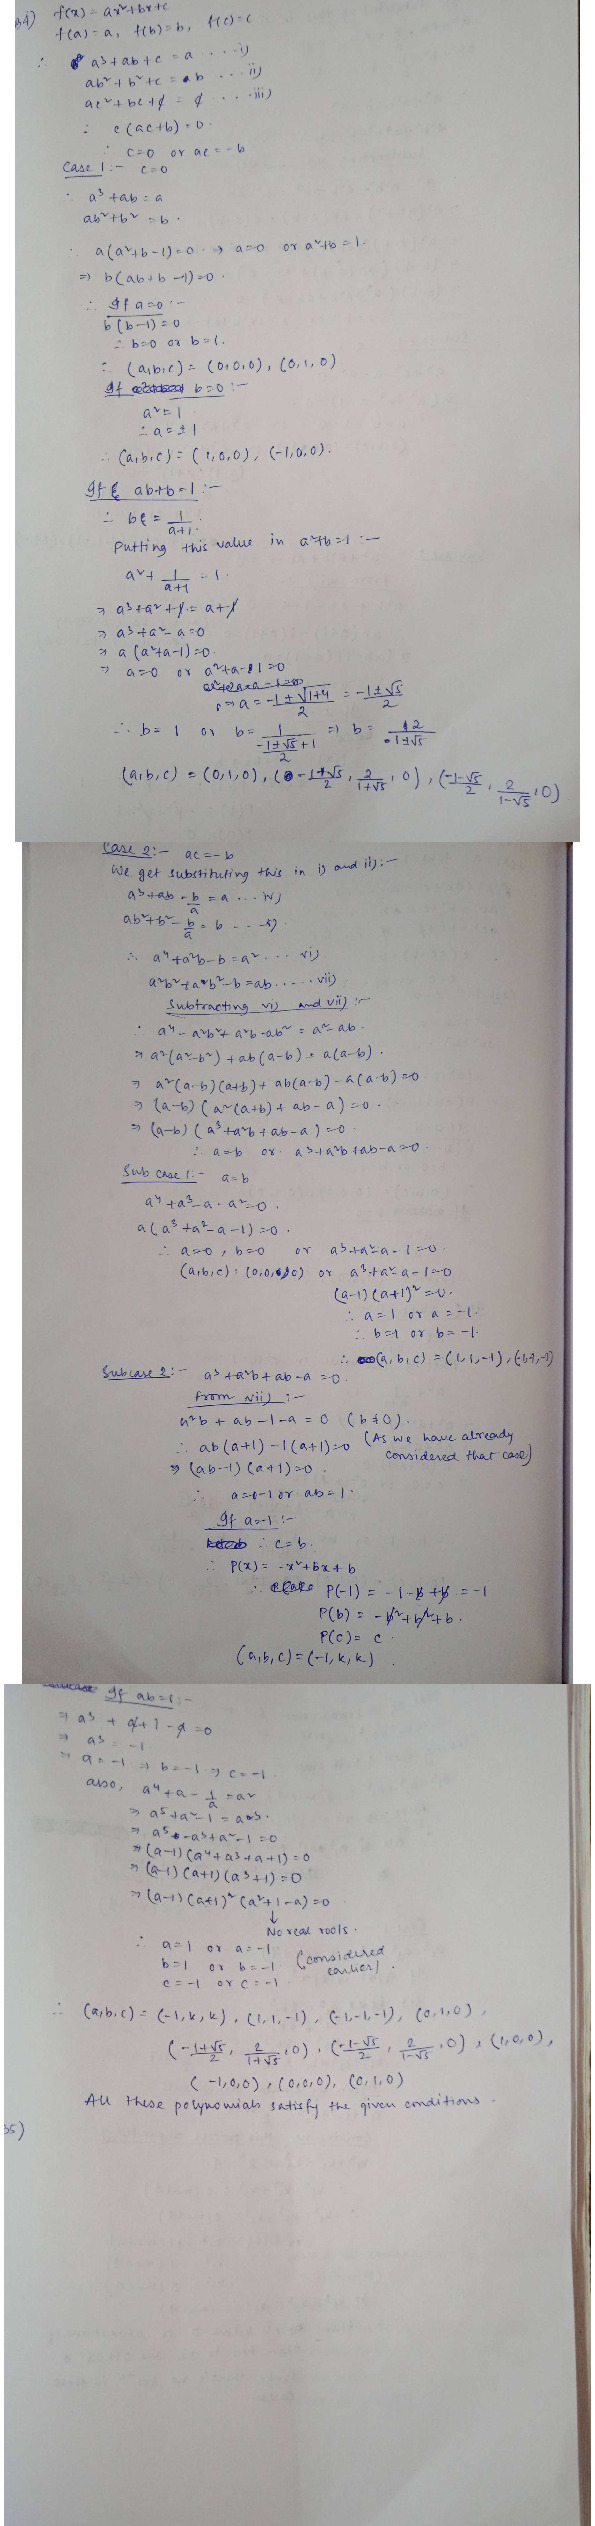 34) f(x) = ax²+bx+c
f(a) = a, f(b) = b, f(c) = c
∴ a³+ab+c = a ... i)
ab²+b²+c = b ... ii)
ac²+bc+c = c ... iii)
∴ c(ac+b) = 0.
∴ c=0 or ac = -b
Case 1:- c=0
∴ a³+ab = a
ab²+b² = b.
∴ a(a²+b-1)=0. ⇒ a=0 or a²+b=1.
⇒ b(ab+b-1)=0.
∴ If a=0 :-
b(b-1)=0
∴ b=0 or b=1.
∴ (a,b,c) = (0,0,0), (0,1,0)
If b=0 :-
a²=1
∴ a = ±1
∴ (a,b,c) = (1,0,0), (-1,0,0).
If ab+b=1 :-
∴ b = 1/(a+1).
Putting this value in a²+b=1 :-
a² + 1/(a+1) = 1.
⇒ a³+a²+1 = a+1
⇒ a³+a²-a=0
⇒ a(a²+a-1)=0.
⇒ a=0 or a²+a-1=0
⇒ a = (-1±√(1+4))/2 = (-1±√5)/2
∴ b = 1 or b = 1/((-1±√5)/2+1) ⇒ b = 2/(1±√5)
(a,b,c) = (0,1,0), ((-1+√5)/2, 2/(1+√5), 0), ((-1-√5)/2, 2/(1-√5), 0)
Case 2:- ac = -b
We get substituting this in i) and ii):-
a³+ab-b/a = a ... iv)
ab²+b²-b/a = b ... v)
∴ a⁴+a²b-b=a² ... vi)
a²b²+ab²-b=ab ..... vii)
Subtracting vi) and vii) :-
∴ a⁴-a²b²+a²b-ab² = a²-ab.
⇒ a²(a²-b²)+ab(a-b) = a(a-b).
⇒ a²(a-b)(a+b)+ab(a-b)-a(a-b)=0
⇒ (a-b)(a²(a+b)+ab-a)=0.
⇒ (a-b)(a³+a²b+ab-a)=0.
∴ a=b or a³+a²b+ab-a=0.
Sub case 1:- a=b
a⁴+a³-a-a²=0.
a(a³+a²-a-1)=0.
∴ a=0, b=0 or a³+a²-a-1=0.
(a,b,c) = (0,0,0) or a³+a²-a-1=0
(a-1)(a+1)²=0.
∴ a=1 or a=-1.
∴ b=1 or b=-1.
∴ (a,b,c) = (1,1,-1), (-1,-1,-1)
Subcase 2:- a³+a²b+ab-a=0.
from vii) :-
a²b+ab-1-a = 0 (b≠0).
∴ ab(a+1)-1(a+1)=0 (As we have already
considered that case)
⇒ (ab-1)(a+1)=0.
∴ a=-1 or ab=1.
If a=-1 :-
∴ c=b.
∴ P(x) = -x²+bx+b
∴ P(-1) = -1-b+b = -1
P(b) = -b²+b²+b.
P(c) = c.
(a,b,c) = (-1,k,k).
If ab=1:-
⇒ a³+a+1-a=0
⇒ a³ = -1
⇒ a=-1 ⇒ b=-1 ⇒ c=-1
also, a⁴+a-1/a=a²
⇒ a⁵+a²-1=a³.
⇒ a⁵-a³+a²-1=0
⇒ (a-1)(a⁴+a³+a+1)=0
⇒ (a-1)(a+1)(a³+1)=0
⇒ (a-1)(a+1)²(a²+1-a)=0
↓
No real roots.
∴ a=1 or a=-1.
b=1 or b=-1 (considered
c=-1 or c=-1. earlier).
∴ (a,b,c) = (-1,k,k), (1,1,-1), (-1,-1,-1), (0,1,0),
((-1+√5)/2, 2/(1+√5), 0), ((-1-√5)/2, 2/(1-√5), 0), (1,0,0),
(-1,0,0), (0,0,0), (0,1,0)
All these polynomials satisfy the given conditions.
35)